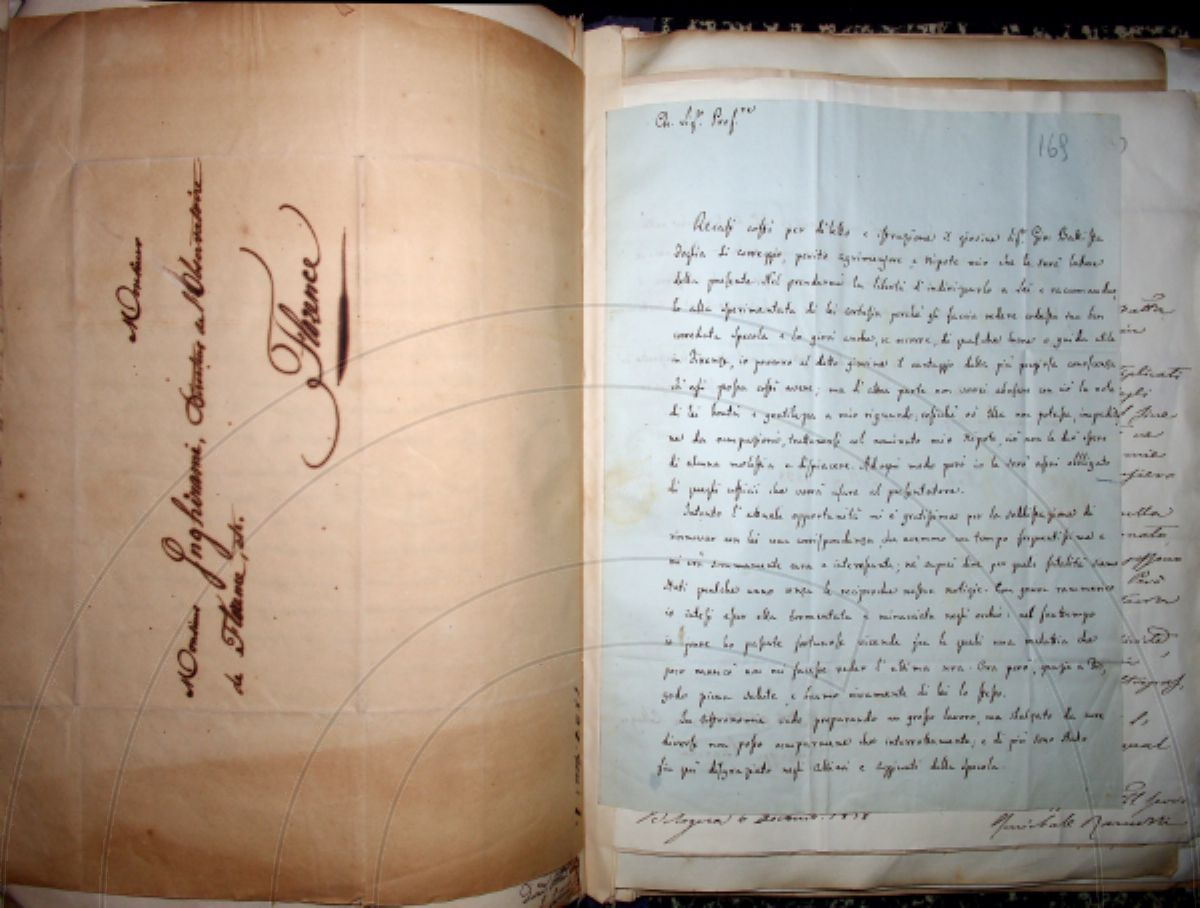 Monsieur
Monsieur Inghirami, Directeur de l'Observatoire
de Florence, etc.
Florence
Ch. Sigr. Profre
169
Recasi costì per diletto e istruzione il giovine Sigr. Gio. Battista
Soglia di Correggio, perito agrimensore, e Nipote mio che le sarà latore
della presente. Nel prendermi la libertà d'indirizzarlo a Lei e raccomandar
lo alla sperimentata di lei cortesia perchè gli faccia vedere codesta sua ben
corredata Specola e lo giovi anche, se occorre, di qualche lume o guida utile
in Firenze, io procuro al detto giovine il vantaggio della più pregiata conoscenza
ch'egli possa costì avere; ma d'altra parte non vorrei abusare con ciò la nota
di lei bontà e gentilezza a mio riguardo, cosichè se Ella non potesse, impedita
ne da occupazione, trattenersi col nominato mio Nipote, ciò non le dev'essere
di alcuna molestia e dispiacere. Ad ogni modo però io le sarò assai obbligato
di quegli ufficii che vorrà usare al presentatore.
Intanto l'attuale opportunità mi è gratissima per la soddisfazione di
rinnovar con lei una corrispondenza, che avemmo un tempo frequentissima e
mi era sommamente cara e interessante; nè saprei dire per quali fatalità siamo
stati qualche anno senza le reciproche nostre notizie. Con grave rammarico
io intesi esser ella tormentata e minacciata negli occhi: nel frattempo
io pure ho passate fortunose vicende fra le quali una malattia che
poco mancò non mi facesse veder l'ultima sera. Ora però, grazie a Dio,
godo piena salute, e bramo vivamente di lei lo stesso.
In Astronomia vado preparando un grosso lavoro, ma distolto da cure
diverse non posso occuparmene che interrottamente; e di più sono stato
fin qui disgraziato negli Allievi e Aggiunti della Specola.
Bologna 6 Decemb. 1838
Annibale